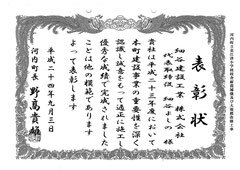 表彰状
細谷建設工業 株式会社
代表取締役 細谷よしの 様
貴社は平成二十三年度において
本町建設事業の重要性を深く
認識し誠意をもって適正に施工し
優秀な成績で完成されました
ことは他の模範であります
よって表彰します
平成二十四年九月三日
河内町長 野髙貴雄